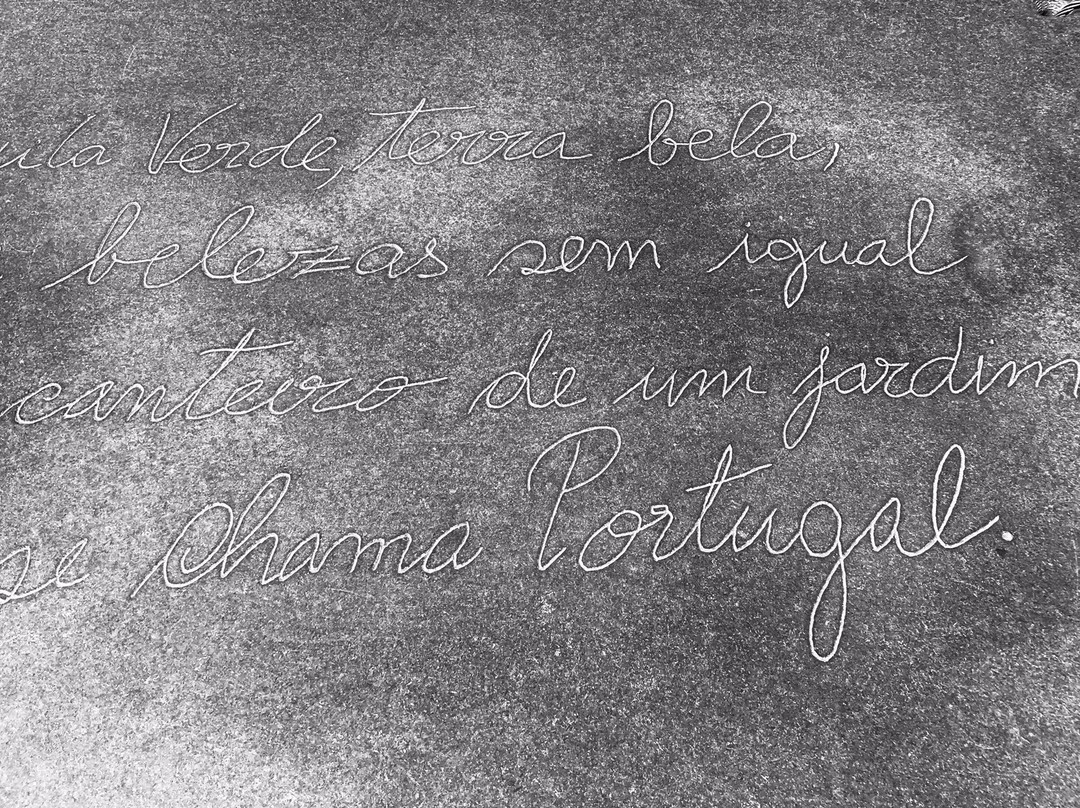 Verde, terra bela,
belezas sem igual
canteiro de um jardim
se chama Portugal.